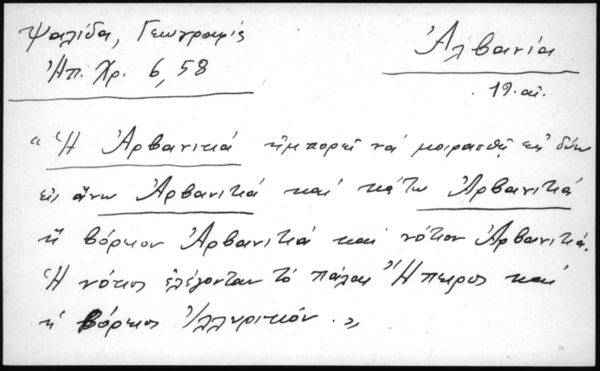 Ψαλίδα, Γεωγραφίς
Ἠπ. Χρ. 6, 58
Ἀλβανία
19. αἰ.
"Ἡ Ἀρβανιτιά ἠμπορεῖ νά μοιρασθῇ εἰς δύω
εἰς ἄνω Ἀρβανιτιά καί κάτω Ἀρβανιτιά
ἤ βόρειον Ἀρβανιτιά καί νότιον Ἀρβανιτιά.
Ἡ νότιος ἐλέγονταν τό πάλαι Ἤπειρος καί
ἡ βόρειος Ἰλλυρικόν."